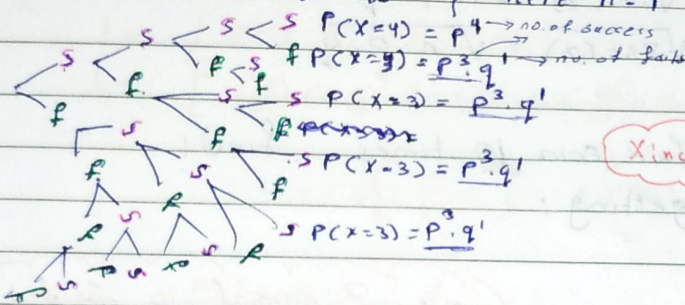 s s s s P(X=4) = p⁴ → no. of success
f f P(X=3) = p³·q¹ → no. of fails
s f
f f s s P(X=3) = p³·q¹
f f
s s P(X=3) = p³·q¹
f s f
s
s P(X=3) = p³·q¹
s s
s
X